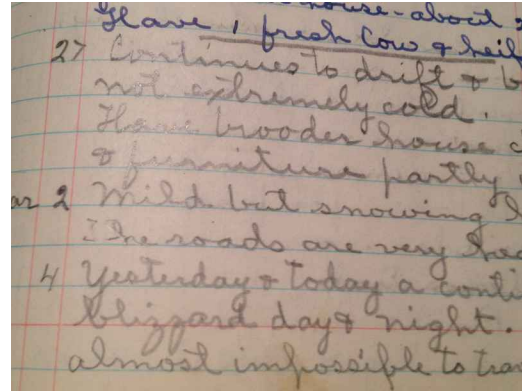 house-about
Have 1 fresh Cow & heif
27 Continues to drift & b
not extremely cold.
Have brooder house c
& furniture partly
ar 2 Mild but snowing
The roads are very
4 Yesterday & Today a conti
blizzard day & night.
almost impossible to tra